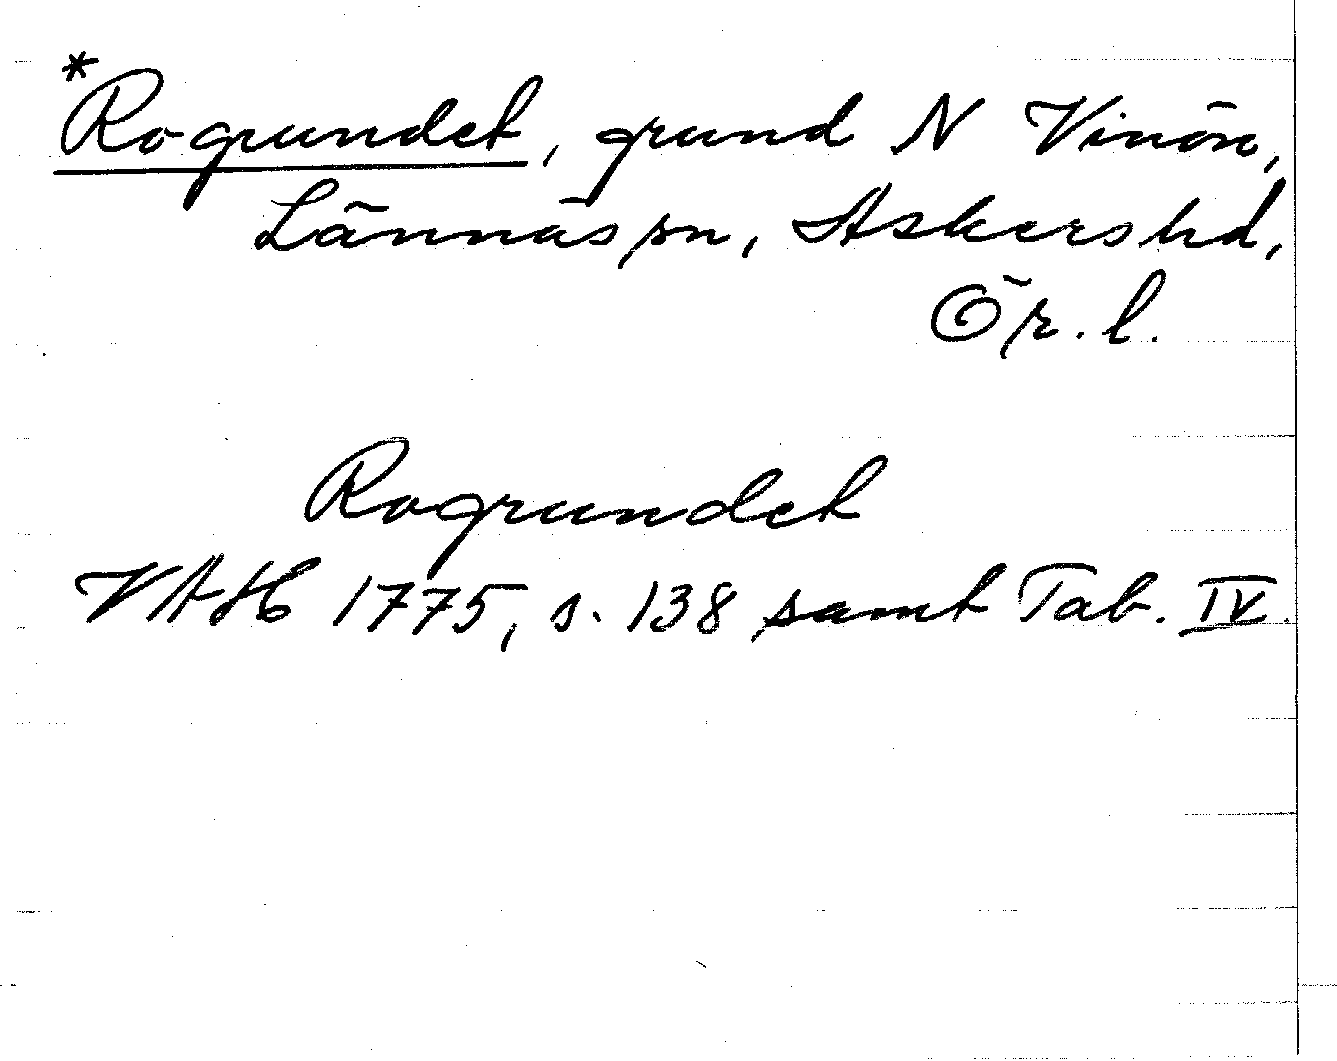 *Rogrundet, grund N Vinön,
Lännäs sn, Askers hd,
Ör. l.
Rogrundet
VAH 1775, s. 138 samt Tab. IV.